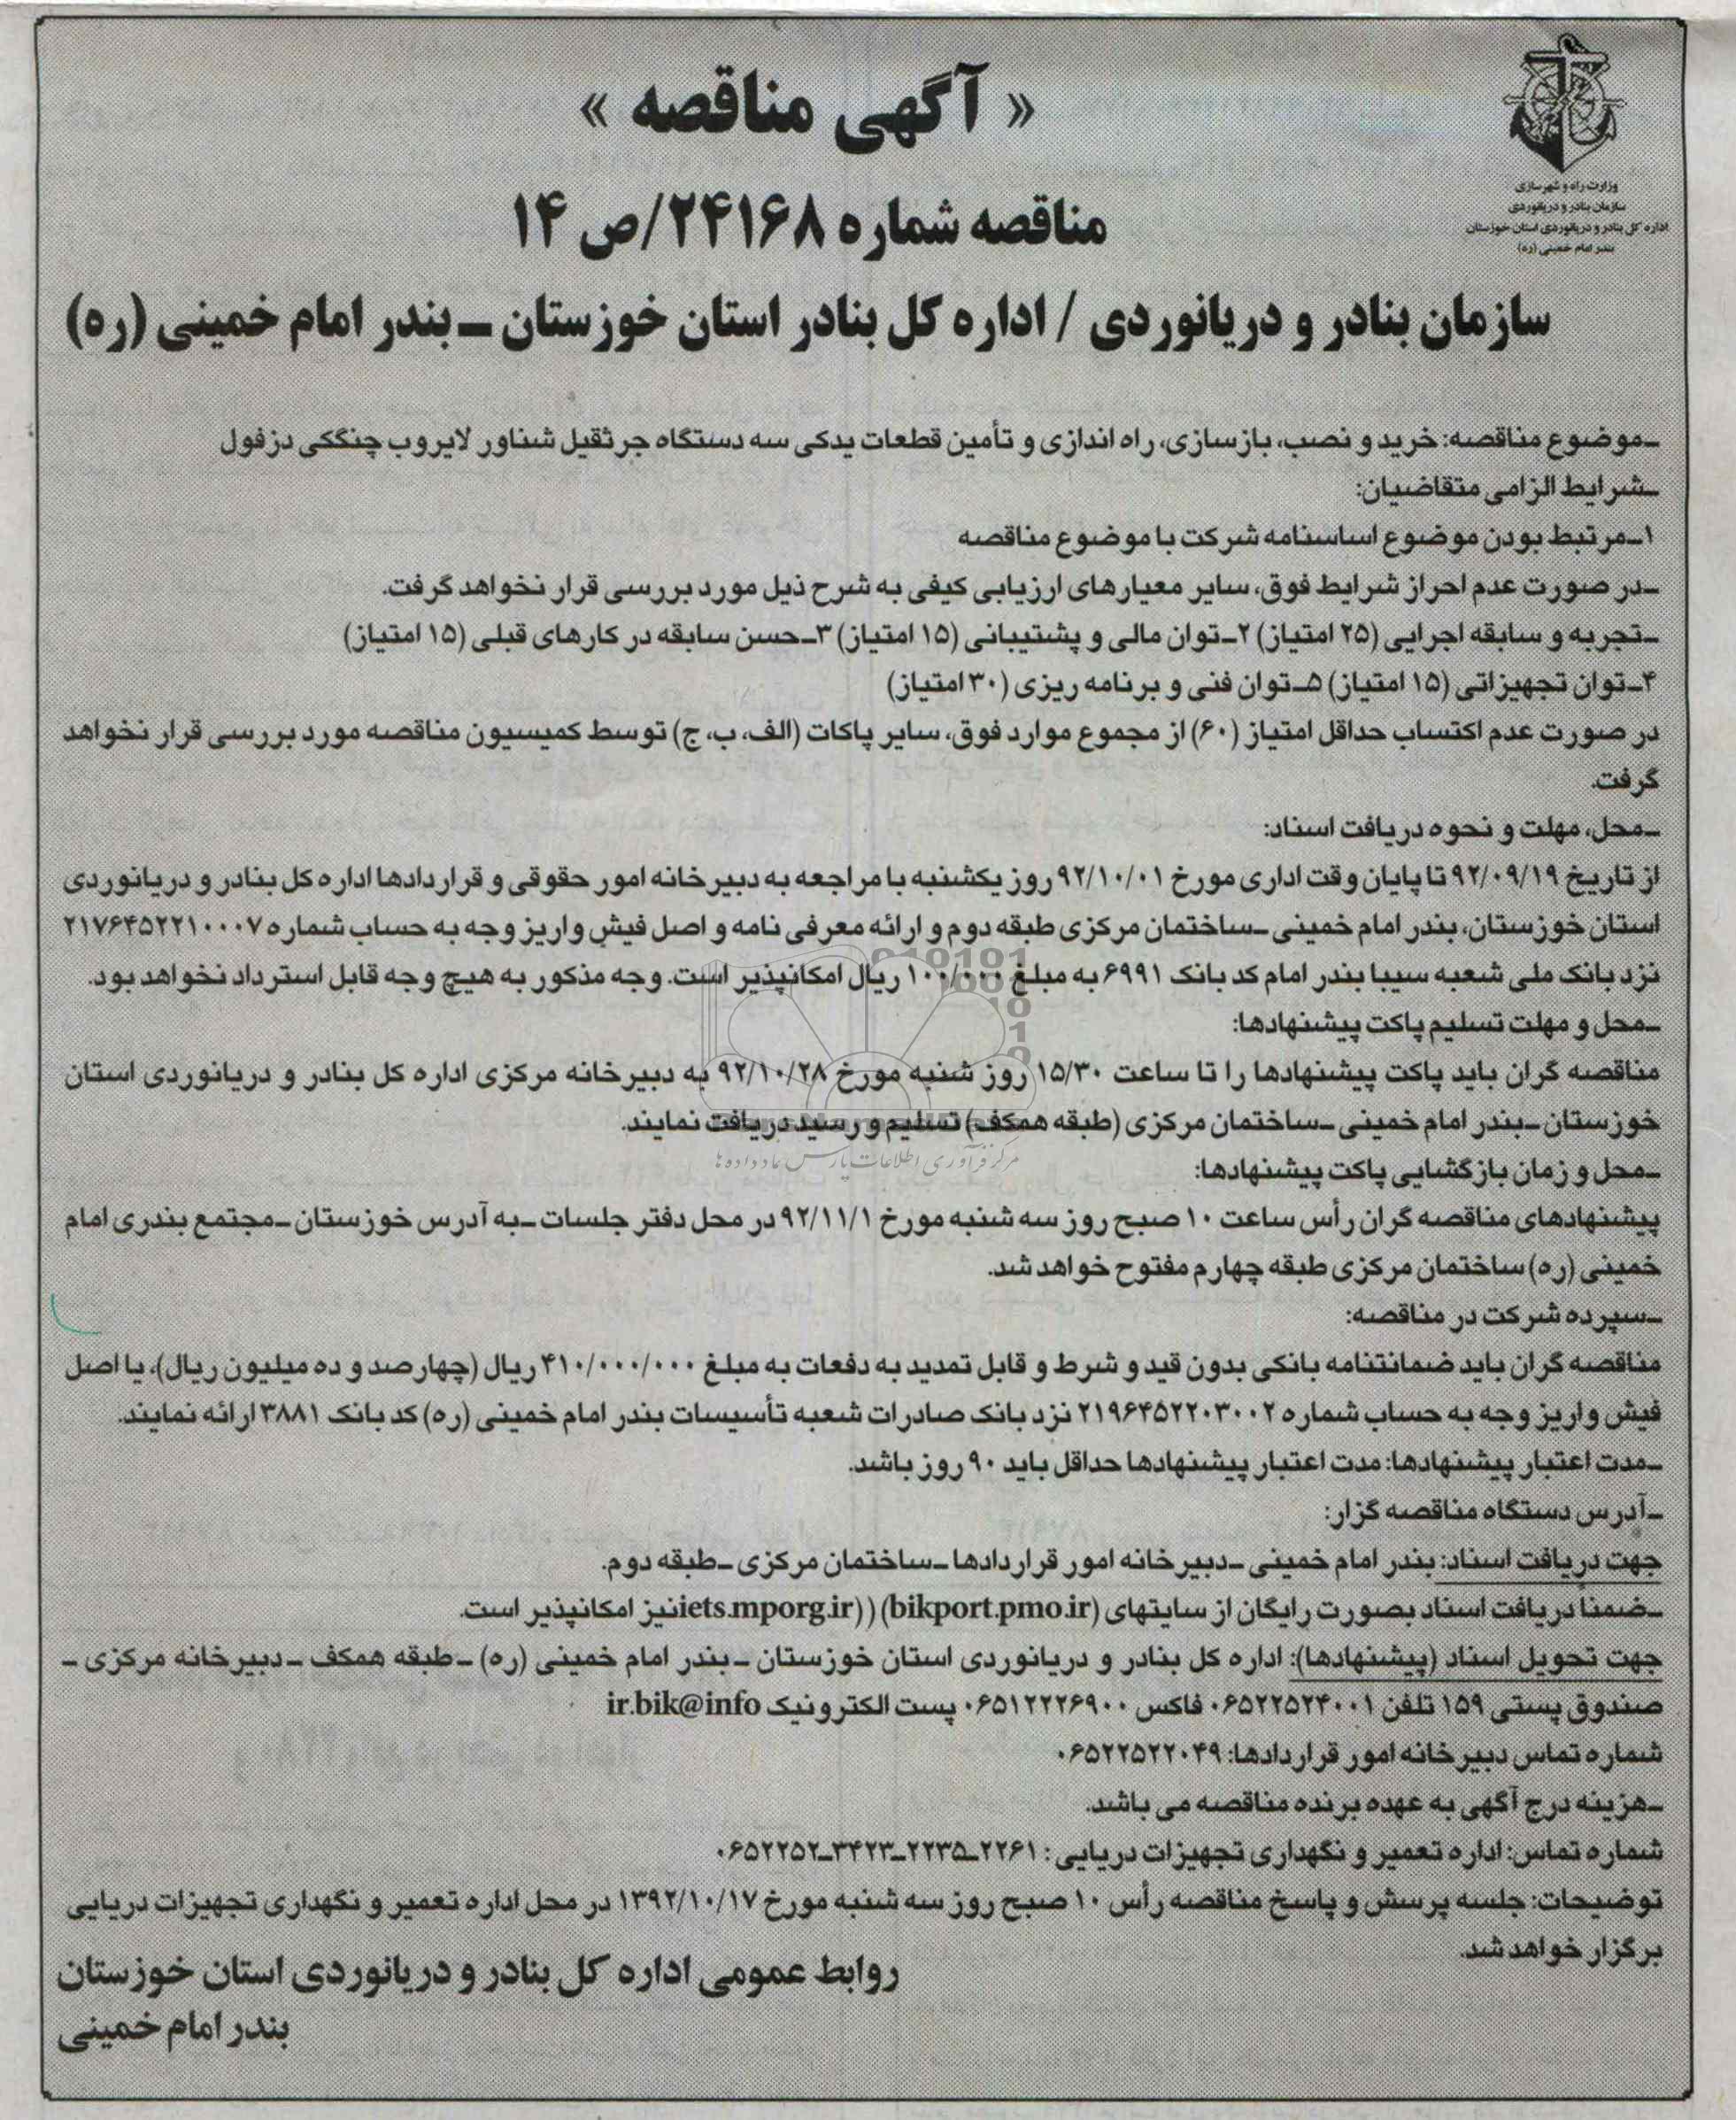 « آگهی مناقصه »
وزارت راه و شهرسازی
سازمان بنادر و دریانوردی
اداره کل بنادر و دریانوردی استان خوزستان
بندر امام خمینی (ره)
مناقصه شماره ۲۴۱۶۸/ص ۱۴
سازمان بنادر و دریانوردی / اداره کل بنادر استان خوزستان ـ بندر امام خمینی (ره)
ـموضوع مناقصه: خرید و نصب، بازسازی، راه اندازی و تأمین قطعات یدکی سه دستگاه جرثقیل شناور لایروب چنگکی دزفول
ـشرایط الزامی متقاضیان:
۱ـمرتبط بودن موضوع اساسنامه شرکت با موضوع مناقصه
ـدر صورت عدم احراز شرایط فوق، سایر معیارهای ارزیابی کیفی به شرح ذیل مورد بررسی قرار نخواهد گرفت.
ـتجربه و سابقه اجرایی (۲۵ امتیاز) ۲ـتوان مالی و پشتیبانی (۱۵ امتیاز) ۳ـحسن سابقه در کارهای قبلی (۱۵ امتیاز)
۴ـتوان تجهیزاتی (۱۵ امتیاز) ۵ـتوان فنی و برنامه ریزی (۳۰امتیاز)
در صورت عدم اکتساب حداقل امتیاز (۶۰) از مجموع موارد فوق، سایر پاکات (الف، ب، ج) توسط کمیسیون مناقصه مورد بررسی قرار نخواهد
گرفت.
ـمحل، مهلت و نحوه دریافت اسناد:
از تاریخ ۹۲/۰۹/۱۹ تا پایان وقت اداری مورخ ۹۲/۱۰/۰۱ روز یکشنبه با مراجعه به دبیرخانه امور حقوقی و قراردادها اداره کل بنادر و دریانوردی
استان خوزستان، بندر امام خمینی ـساختمان مرکزی طبقه دوم و ارائه معرفی نامه و اصل فیش واریز وجه به حساب شماره ۲۱۷۶۴۵۲۲۱۰۰۰۷
نزد بانک ملی شعبه سیبا بندر امام کد بانک ۶۹۹۱ به مبلغ ۱۰۰/۰۰۰ ریال امکانپذیر است. وجه مذکور به هیچ وجه قابل استرداد نخواهد بود.
ـمحل و مهلت تسلیم پاکت پیشنهادها:
مناقصه گران باید پاکت پیشنهادها را تا ساعت ۱۵/۳۰ روز شنبه مورخ ۹۲/۱۰/۲۸ به دبیرخانه مرکزی اداره کل بنادر و دریانوردی استان
خوزستان ـبندر امام خمینی ـساختمان مرکزی (طبقه همکف) تسلیم و رسید دریافت نمایند.
مرکز فرآوری اطلاعات پارس نماد داده ها
ـمحل و زمان بازگشایی پاکت پیشنهادها:
پیشنهادهای مناقصه گران رأس ساعت ۱۰ صبح روز سه شنبه مورخ ۹۲/۱۱/۱ در محل دفتر جلسات ـبه آدرس خوزستان ـمجتمع بندری امام
خمینی (ره) ساختمان مرکزی طبقه چهارم مفتوح خواهد شد.
ـسپرده شرکت در مناقصه:
مناقصه گران باید ضمانتنامه بانکی بدون قید و شرط و قابل تمدید به دفعات به مبلغ ۴۱۰/۰۰۰/۰۰۰ ریال (چهارصد و ده میلیون ریال)، یا اصل
فیش واریز وجه به حساب شماره ۲۱۹۶۴۵۲۲۰۳۰۰۲ نزد بانک صادرات شعبه تأسیسات بندر امام خمینی (ره) کد بانک ۳۸۸۱ ارائه نمایند.
ـمدت اعتبار پیشنهادها: مدت اعتبار پیشنهادها حداقل باید ۹۰ روز باشد.
ـآدرس دستگاه مناقصه گزار:
جهت دریافت اسناد: بندر امام خمینی ـدبیرخانه امور قراردادها ـساختمان مرکزی ـطبقه دوم.
ـضمناً دریافت اسناد بصورت رایگان از سایتهای (bikport.pmo.ir) ((iets.mporg.irنیز امکانپذیر است.
جهت تحویل اسناد (پیشنهادها): اداره کل بنادر و دریانوردی استان خوزستان ـ بندر امام خمینی (ره) ـ طبقه همکف ـ دبیرخانه مرکزی ـ
صندوق پستی ۱۵۹ تلفن ۰۶۵۲۲۵۲۴۰۰۱ فاکس ۰۶۵۱۲۲۲۶۹۰۰ پست الکترونیک ir.bik@info
شماره تماس دبیرخانه امور قراردادها: ۰۶۵۲۲۵۲۲۰۴۹
ـهزینه درج آگهی به عهده برنده مناقصه می باشد.
شماره تماس: اداره تعمیر و نگهداری تجهیزات دریایی : ۲۲۶۱ـ۲۲۳۵ـ۳۴۲۳ـ۰۶۵۲۲۵۲
توضیحات: جلسه پرسش و پاسخ مناقصه رأس ۱۰ صبح روز سه شنبه مورخ ۱۳۹۲/۱۰/۱۷ در محل اداره تعمیر و نگهداری تجهیزات دریایی
برگزار خواهد شد.
روابط عمومی اداره کل بنادر و دریانوردی استان خوزستان
بندر امام خمینی